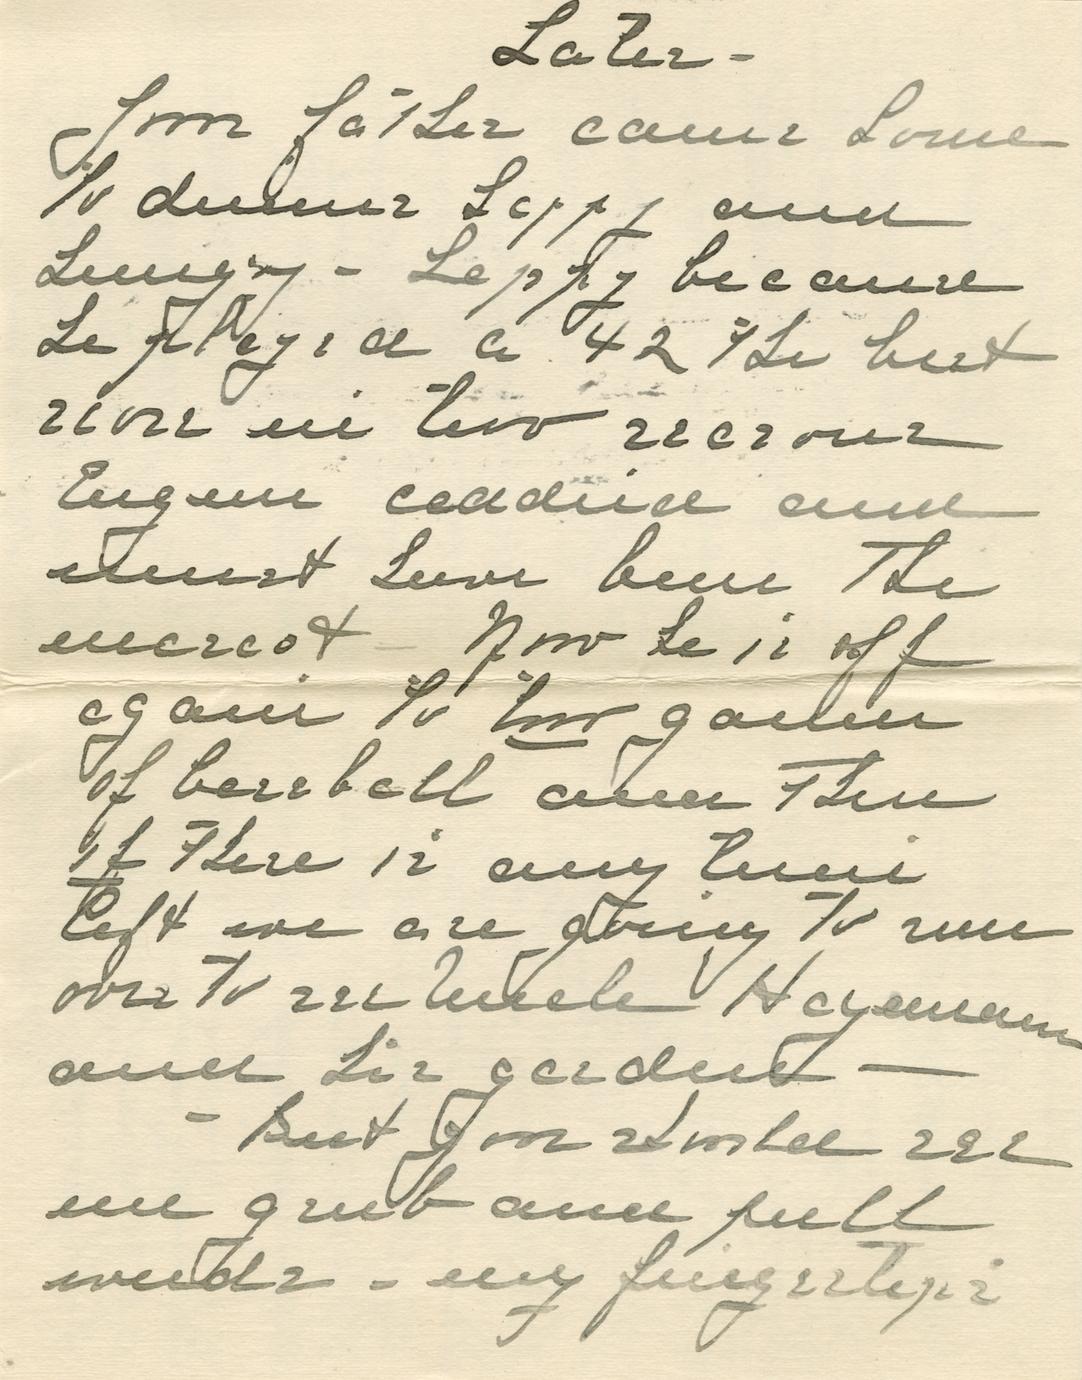 Later -
Your father came home
to dinner happy and
hungry - happy because
he played a 42 the best
score in two seasons
Eugene caddied and
must have been the
mascot - Now he is off
again to two games
of baseball and then
if there is any time
left we are going to run
over to see Uncle Hageman
and his garden —
- But you should see
me grub and pull
weeds - my fingertips